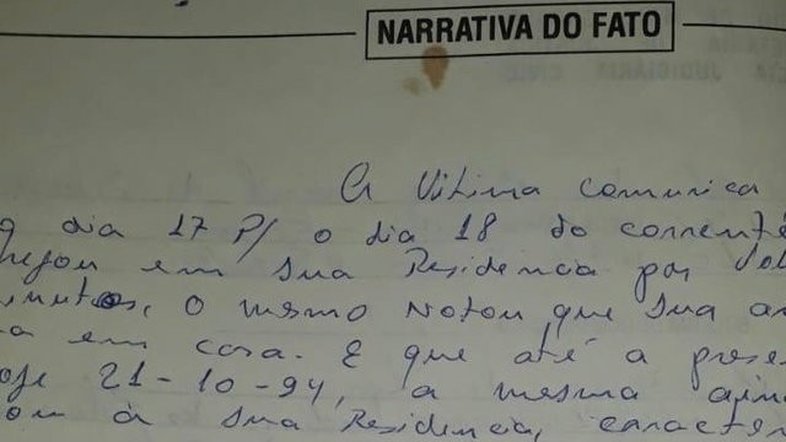 NARRATIVA DO FATO
A Vitima comunica
dia 17 P/ o dia 18 do corrente
em sua Residencia por
o mesmo Notou que sua
em casa. E que até a prese
21-10-94, a mesma ain
ou à sua Residencia, caracte